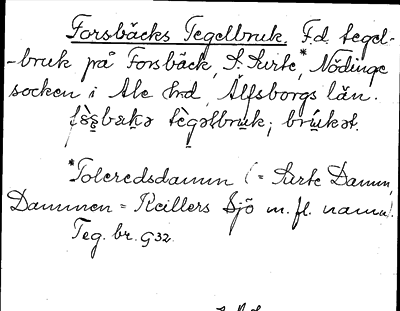 Forsbäcks Tegelbruk. F.d. tegel-
-bruk på Forsbäck, S. Surte*, Nödinge
socken i Ale hrd, Älfsborgs län.
tègəlbruk; brúkət.
*Toleredsdamm (= Surte Damm,
Dammen = Keillers Sjö m.fl. namn).
Teg. br. G32.